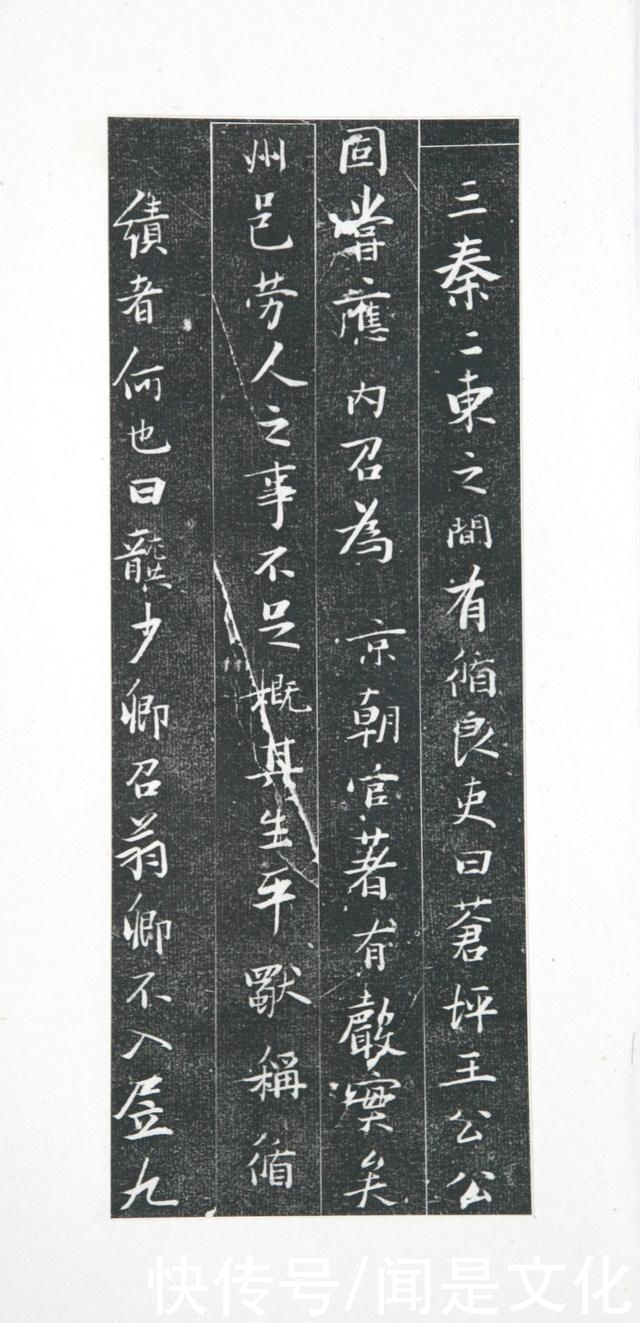 三秦二東之間有循良吏曰蒼坪王公公
固嘗應內召為 京朝官著有聲實矣
州邑劳人之事不足概其生平獨稱循
績者何也曰龔少卿召翁卿不入九
快传号/闻是文化